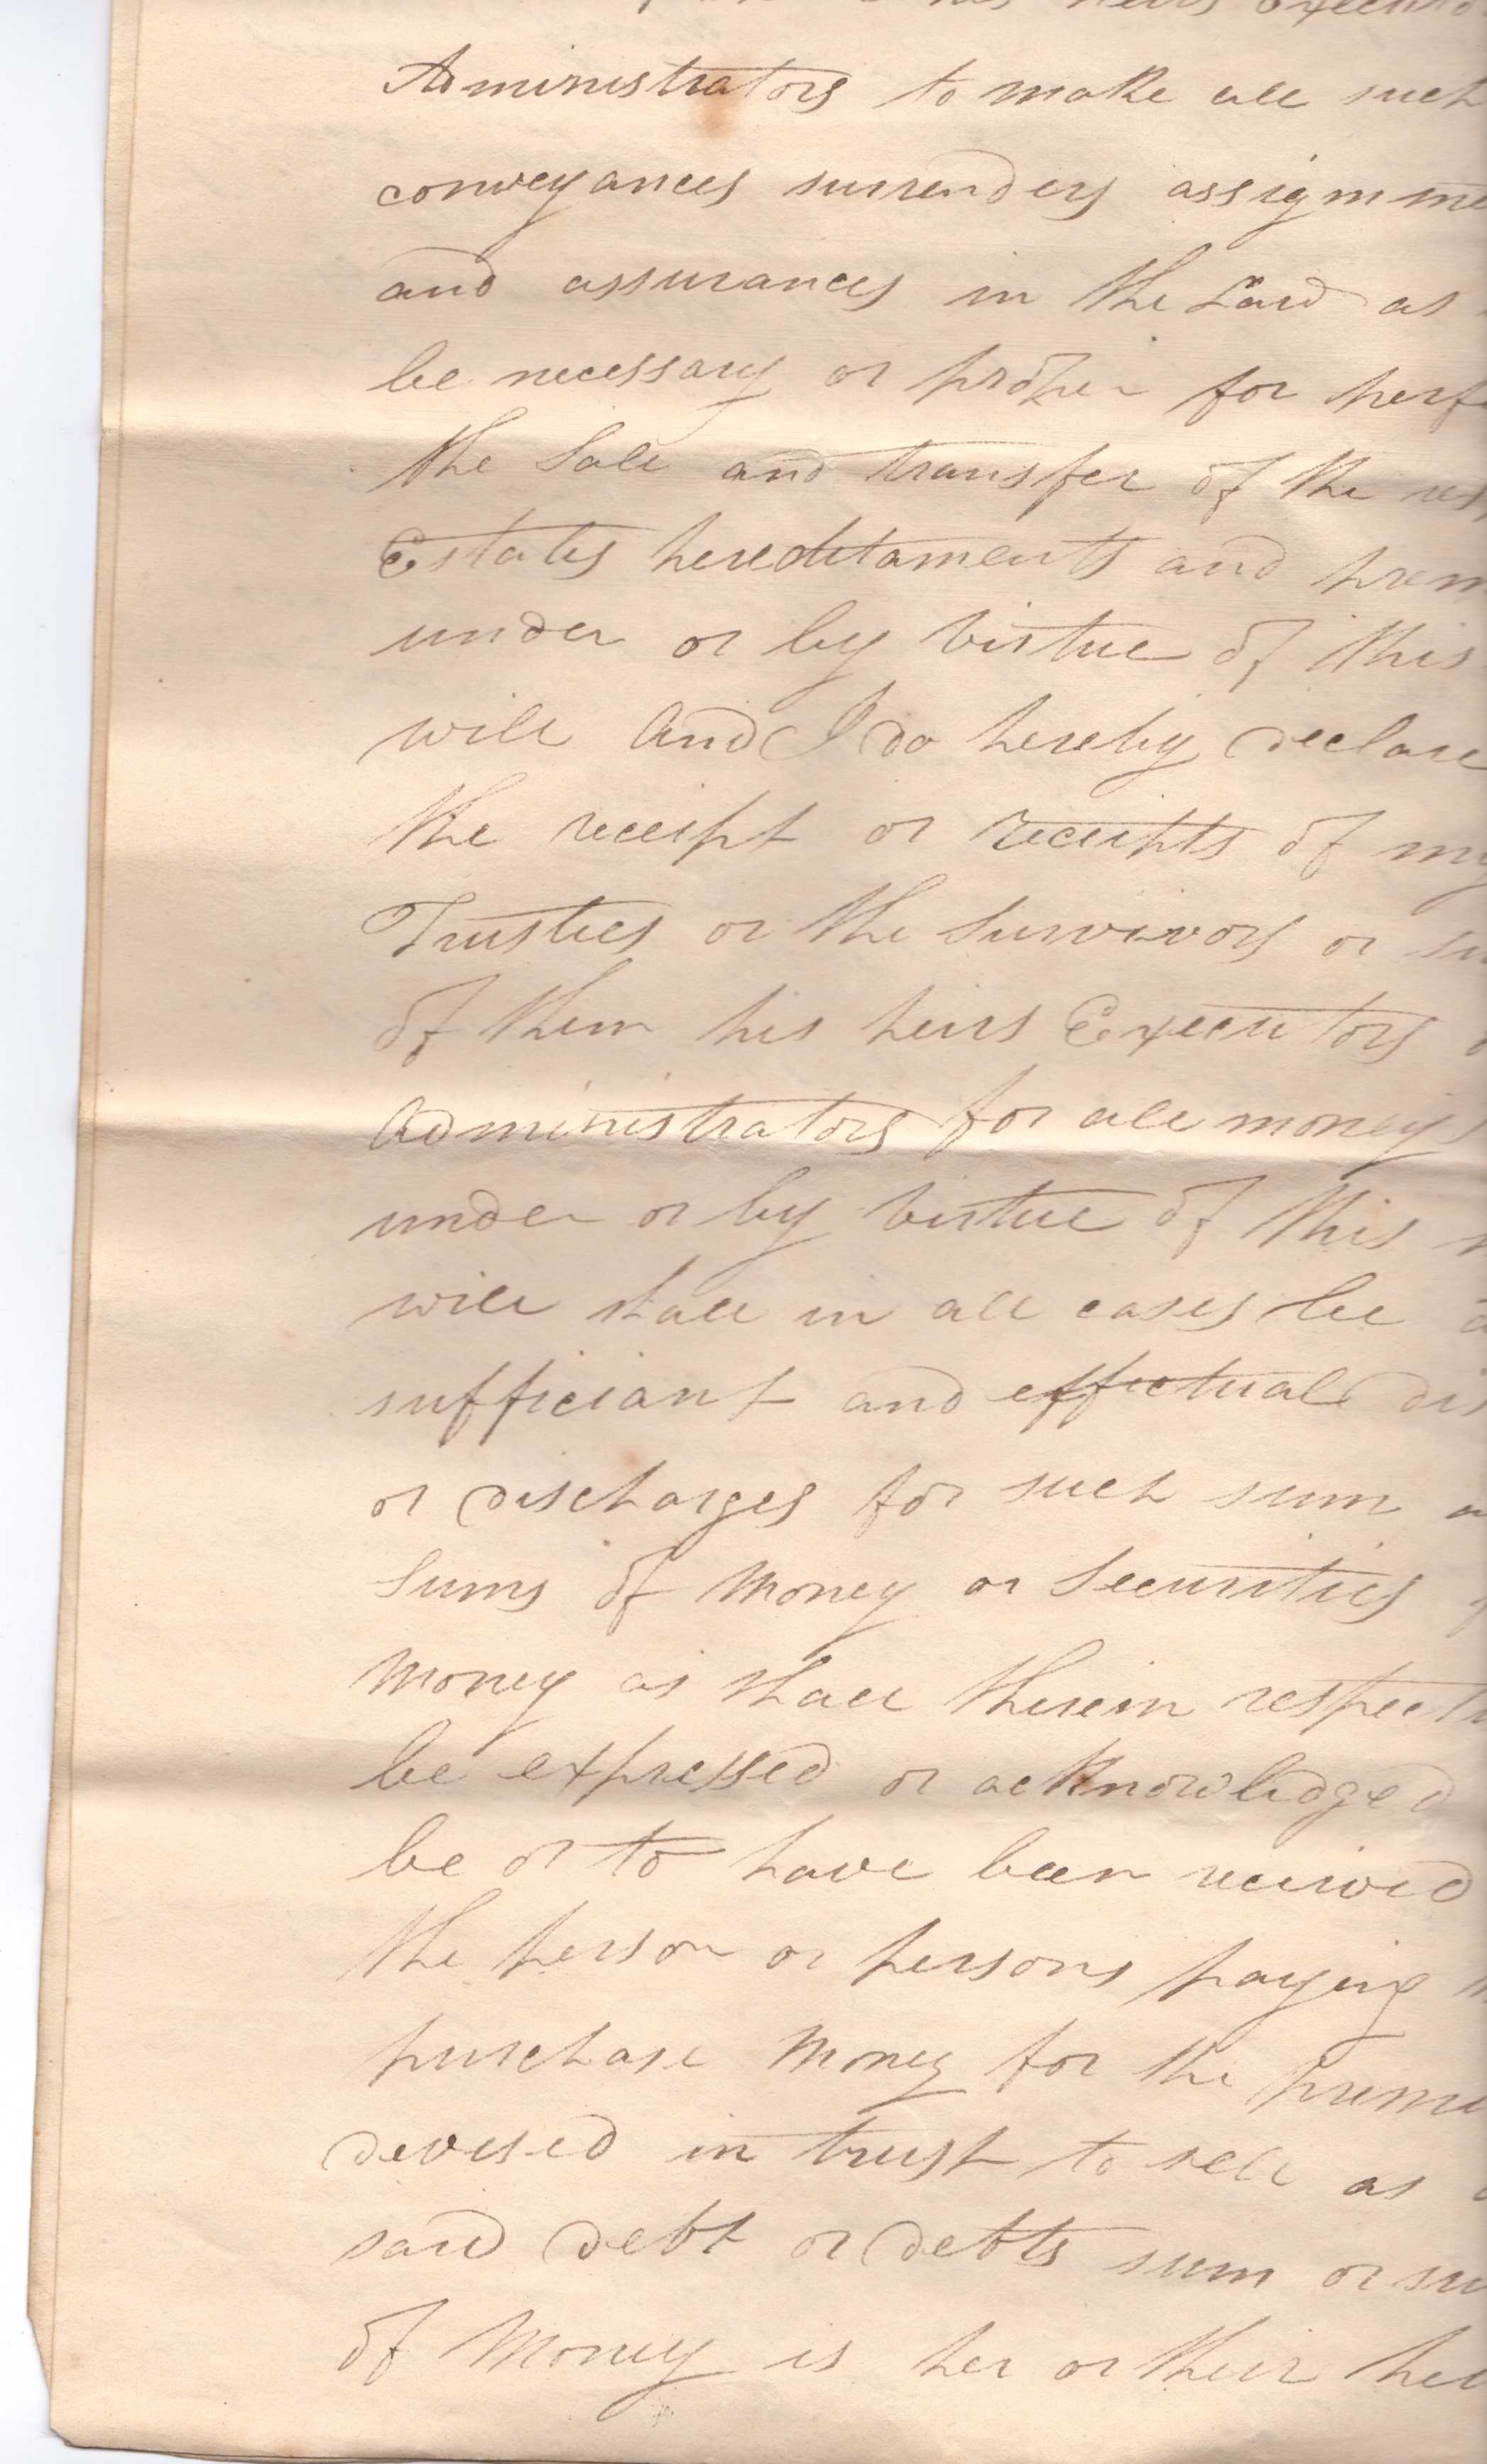 his heirs Executo
Administrators to make all such
conveyances surrenders assignme
and assurances in the Law as
be necessary or proper for perf
the Sale and transfer of the res
Estates hereditaments and prem
under or by virtue of this
will And I do hereby declare
the receipt or receipts of my
Trustees or the Survivors or su
of them his heirs Executors
Administrators for all moneys
under or by virtue of this
will shall in all cases be a
sufficiant and effectual dis
or discharges for such sum
Sums of Money or Securities
Money as shall therein respecti
be expressed or acknowledged
be or to have been received
the person or persons paying
purchase Money for the premi
devised in trust to sell as
said debt or debts sum or su
of Money is her or their hei